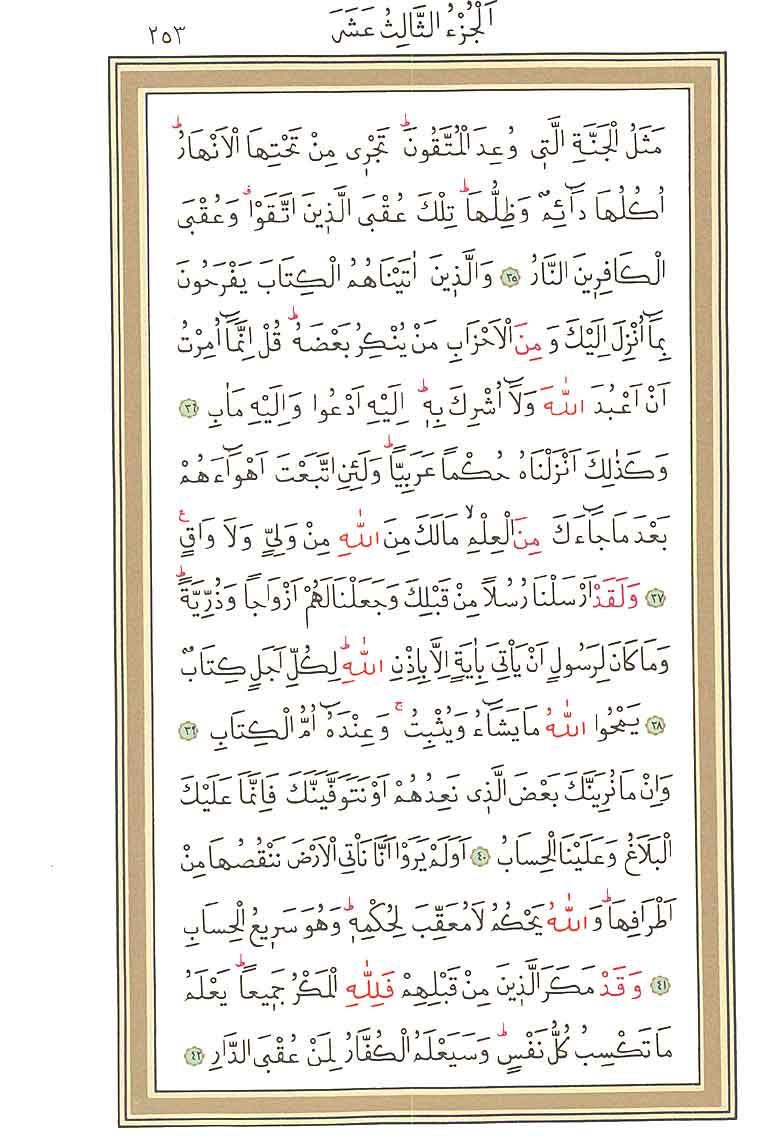 اَلْجُزْءُ الثَّالِثُ عَشَرَ ٢٥٣
مَثَلُ الْجَنَّةِ الَّتٖي وُعِدَ الْمُتَّقُونَؕ تَجْرٖي مِنْ تَحْتِهَا الْاَنْهَارُؕ
اُكُلُهَا دَٓائِمٌ وَظِلُّهَاؕ تِلْكَ عُقْبَى الَّذٖينَ اتَّقَوْاࣗ وَعُقْبَى
الْكَافِرٖينَ النَّارُ ﴿٣٥﴾ وَالَّذٖينَ اٰتَيْنَاهُمُ الْكِتَابَ يَفْرَحُونَ
بِمَٓا اُنْزِلَ اِلَيْكَ وَمِنَ الْاَحْزَابِ مَنْ يُنْكِرُ بَعْضَهُؕ قُلْ اِنَّمَٓا اُمِرْتُ
اَنْ اَعْبُدَ اللّٰهَ وَلَٓا اُشْرِكَ بِهٖؕ اِلَيْهِ اَدْعُوا وَاِلَيْهِ مَاٰبِ ﴿٣٦﴾
وَكَذٰلِكَ اَنْزَلْنَاهُ حُكْماً عَرَبِياًّؕ وَلَئِنِ اتَّبَعْتَ اَهْوَٓاءَهُمْ
بَعْدَ مَا جَٓاءَكَ مِنَ الْعِلْمِۙ مَا لَكَ مِنَ اللّٰهِ مِنْ وَلِيٍّ وَلَا وَاقٍࣖ
﴿٣٧﴾ وَلَقَدْ اَرْسَلْنَا رُسُلاً مِنْ قَبْلِكَ وَجَعَلْنَا لَهُمْ اَزْوَاجاً وَذُرِّيَّةًؕ
وَمَا كَانَ لِرَسُولٍ اَنْ يَأْتِيَ بِاٰيَةٍ اِلَّا بِاِذْنِ اللّٰهِؕ لِكُلِّ اَجَلٍ كِتَابٌ
﴿٣٨﴾ يَمْحُوا اللّٰهُ مَا يَشَٓاءُ وَيُثْبِتُۚ وَعِنْدَهُٓ اُمُّ الْكِتَابِ ﴿٣٩﴾
وَاِنْ مَا نُرِيَنَّكَ بَعْضَ الَّذٖي نَعِدُهُمْ اَوْ نَتَوَفَّيَنَّكَ فَاِنَّمَا عَلَيْكَ
الْبَلَاغُ وَعَلَيْنَا الْحِسَابُ ﴿٤٠﴾ اَوَلَمْ يَرَوْا اَنَّا نَأْتِي الْاَرْضَ نَنْقُصُهَا مِنْ
اَطْرَافِهَاؕ وَاللّٰهُ يَحْكُمُ لَا مُعَقِّبَ لِحُكْمِهٖؕ وَهُوَ سَرٖيعُ الْحِسَابِ
﴿٤١﴾ وَقَدْ مَكَرَ الَّذٖينَ مِنْ قَبْلِهِمْ فَلِلّٰهِ الْمَكْرُ جَمٖيعاًؕ يَعْلَمُ
مَا تَكْسِبُ كُلُّ نَفْسٍؕ وَسَيَعْلَمُ الْكُفَّارُ لِمَنْ عُقْبَى الدَّارِ ﴿٤٢﴾